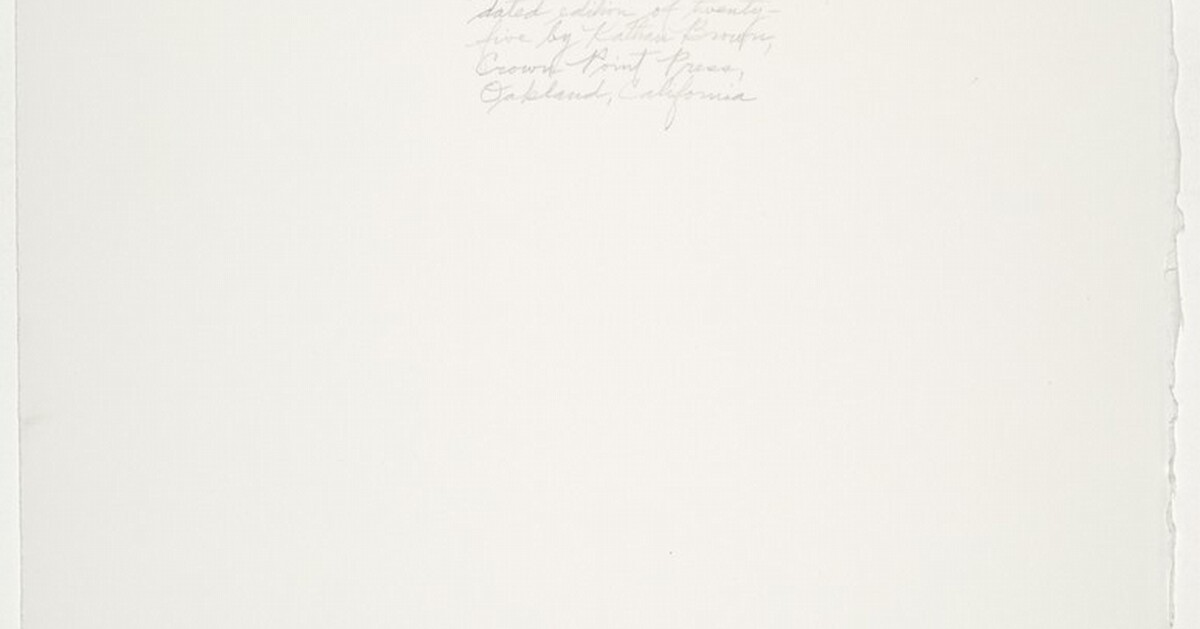 dated edition of twenty-
five by Kathan Brown,
Crown Point Press,
Oakland, California